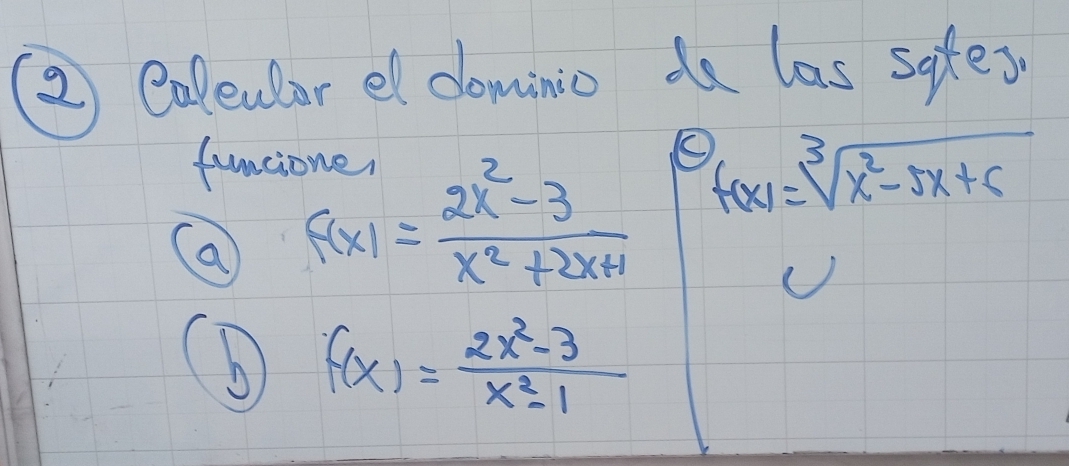 ② Calcular el dominio de las sgtes.
funciones
ⓐ f(x) = \frac{2x^2-3}{x^2+2x+1}
ⓑ f(x) = \frac{2x^2-3}{x^2-1}
ⓒ f(x) = \sqrt[3]{x^2-5x+6}